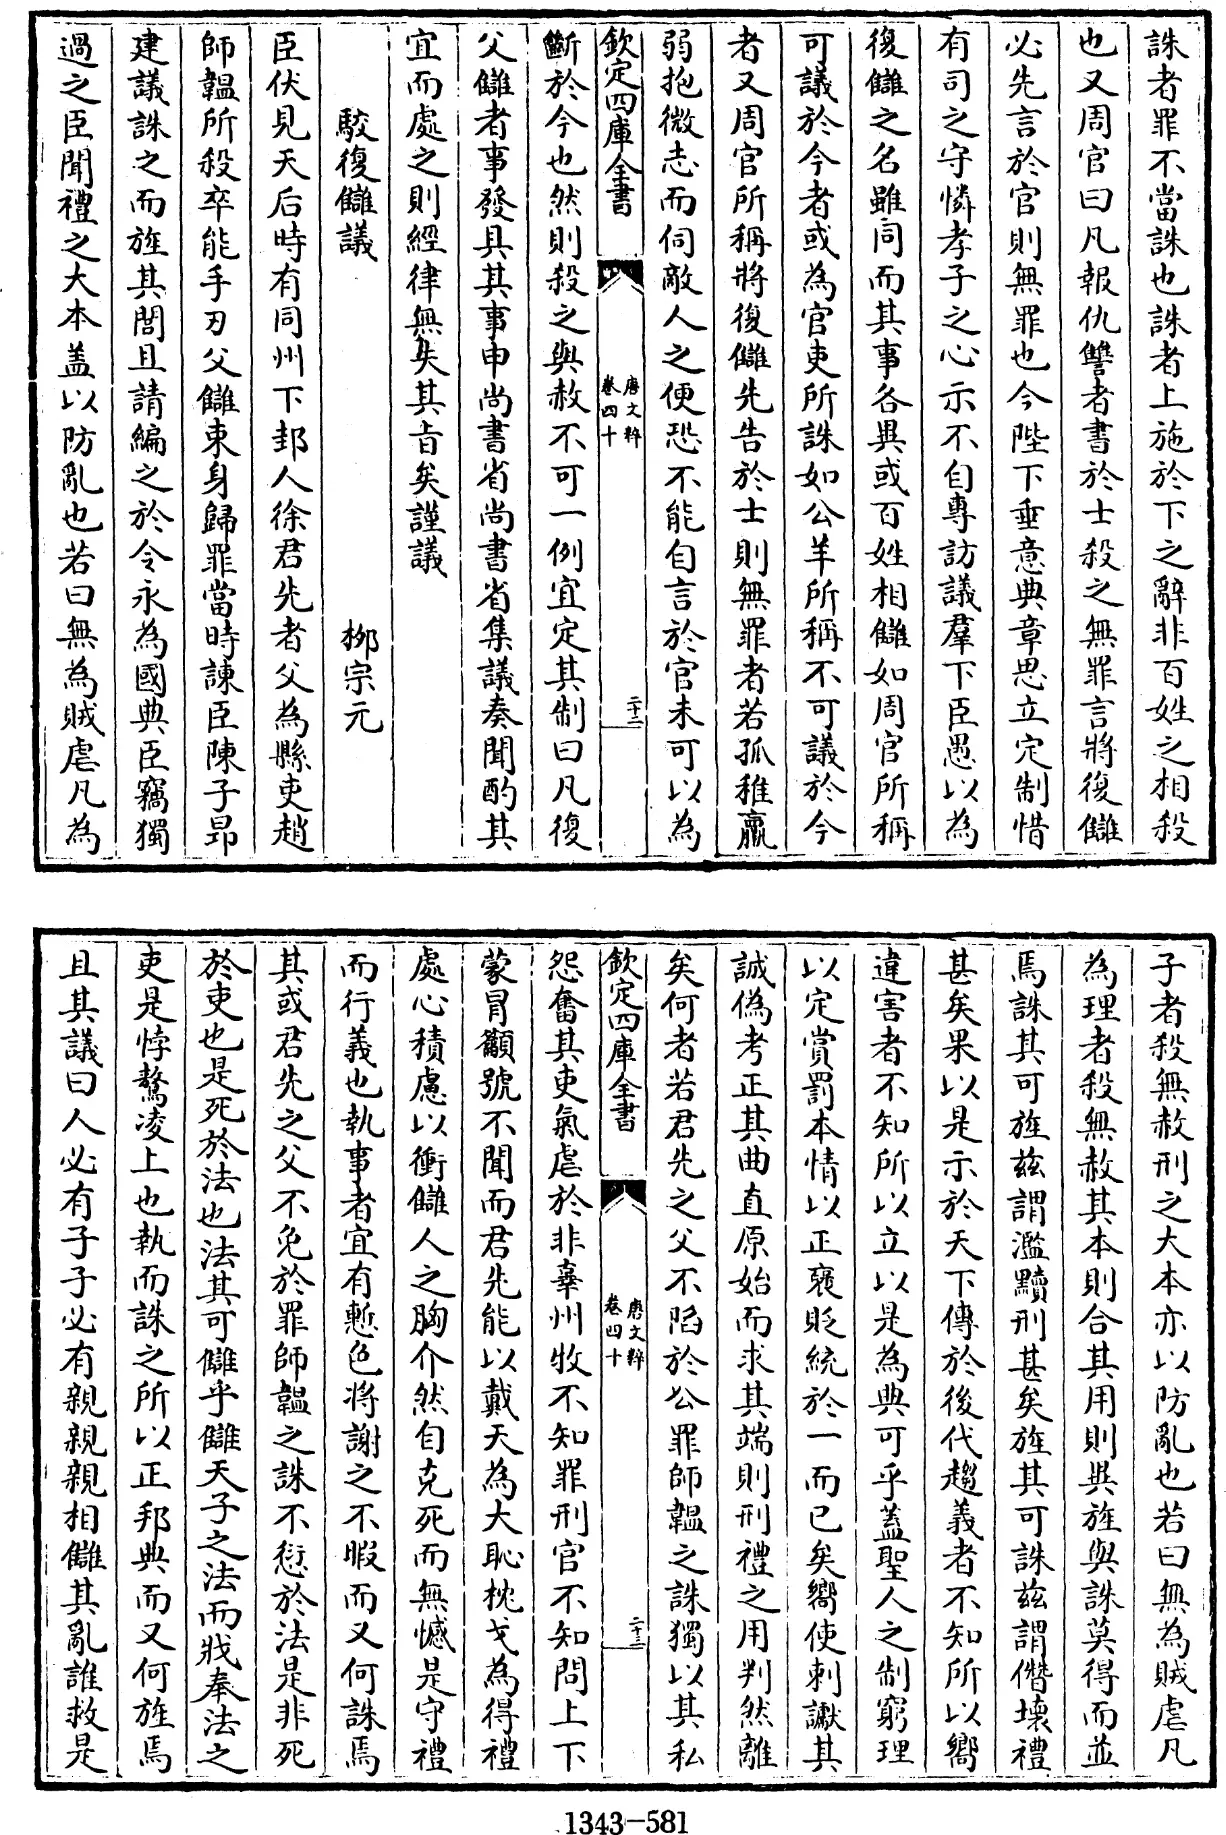 誅者罪不當誅也誅者上施於下之辭非百姓之相殺
也又周官曰凡報仇讐者書於士殺之無罪言將復讎
必先言於官則無罪也今陛下垂意典章思立定制惜
有司之守憐孝子之心示不自專訪議羣下臣愚以為
復讎之名雖同而其事各異或百姓相讎如周官所稱
可議於今者或為官吏所誅如公羊所稱不可議於今
者又周官所稱將復讎先告於士則無罪者若孤稚羸
弱抱微志而伺敵人之便恐不能自言於官未可以為
欽定四庫全書
唐文粹
卷四十
二十二
斷於今也然則殺之與赦不可一例宜定其制曰凡復
父讎者事發具其事申尚書省尚書省集議奏聞酌其
宜而處之則經律無失其旨矣謹議
駮復讎議 柳宗元
臣伏見天后時有同州下邽人徐君先者父為縣吏趙
師韞所殺卒能手刃父讎束身歸罪當時諫臣陳子昻
建議誅之而旌其閭且請編之於令永為國典臣竊獨
過之臣聞禮之大本盖以防亂也若曰無為賊虐凡為
子者殺無赦刑之大本亦以防亂也若曰無為賊虐凡
為理者殺無赦其本則合其用則異旌與誅莫得而並
焉誅其可旌茲謂濫黷刑甚矣旌其可誅茲謂僭壞禮
甚矣果以是示於天下傳於後代趨義者不知所以嚮
違害者不知所以立以是為典可乎蓋聖人之制窮理
以定賞罰本情以正褒貶統於一而已矣嚮使刺讞其
誠偽考正其曲直原始而求其端則刑禮之用判然離
矣何者若君先之父不陷於公罪師韞之誅獨以其私
欽定四庫全書
唐文粹
卷四十
二十三
怨奮其吏氣虐於非辜州牧不知罪刑官不知問上下
蒙冒籲號不聞而君先能以戴天為大恥枕戈為得禮
處心積慮以衝讎人之胸介然自克死而無憾是守禮
而行義也執事者宜有慙色將謝之不暇而又何誅焉
其或君先之父不免於罪師韞之誅不愆於法是非死
於吏也是死於法也法其可讎乎讎天子之法而戕奉法之
吏是悖驁凌上也執而誅之所以正邦典而又何旌焉
且其議曰人必有子子必有親親親相讎其亂誰救是
1343-581